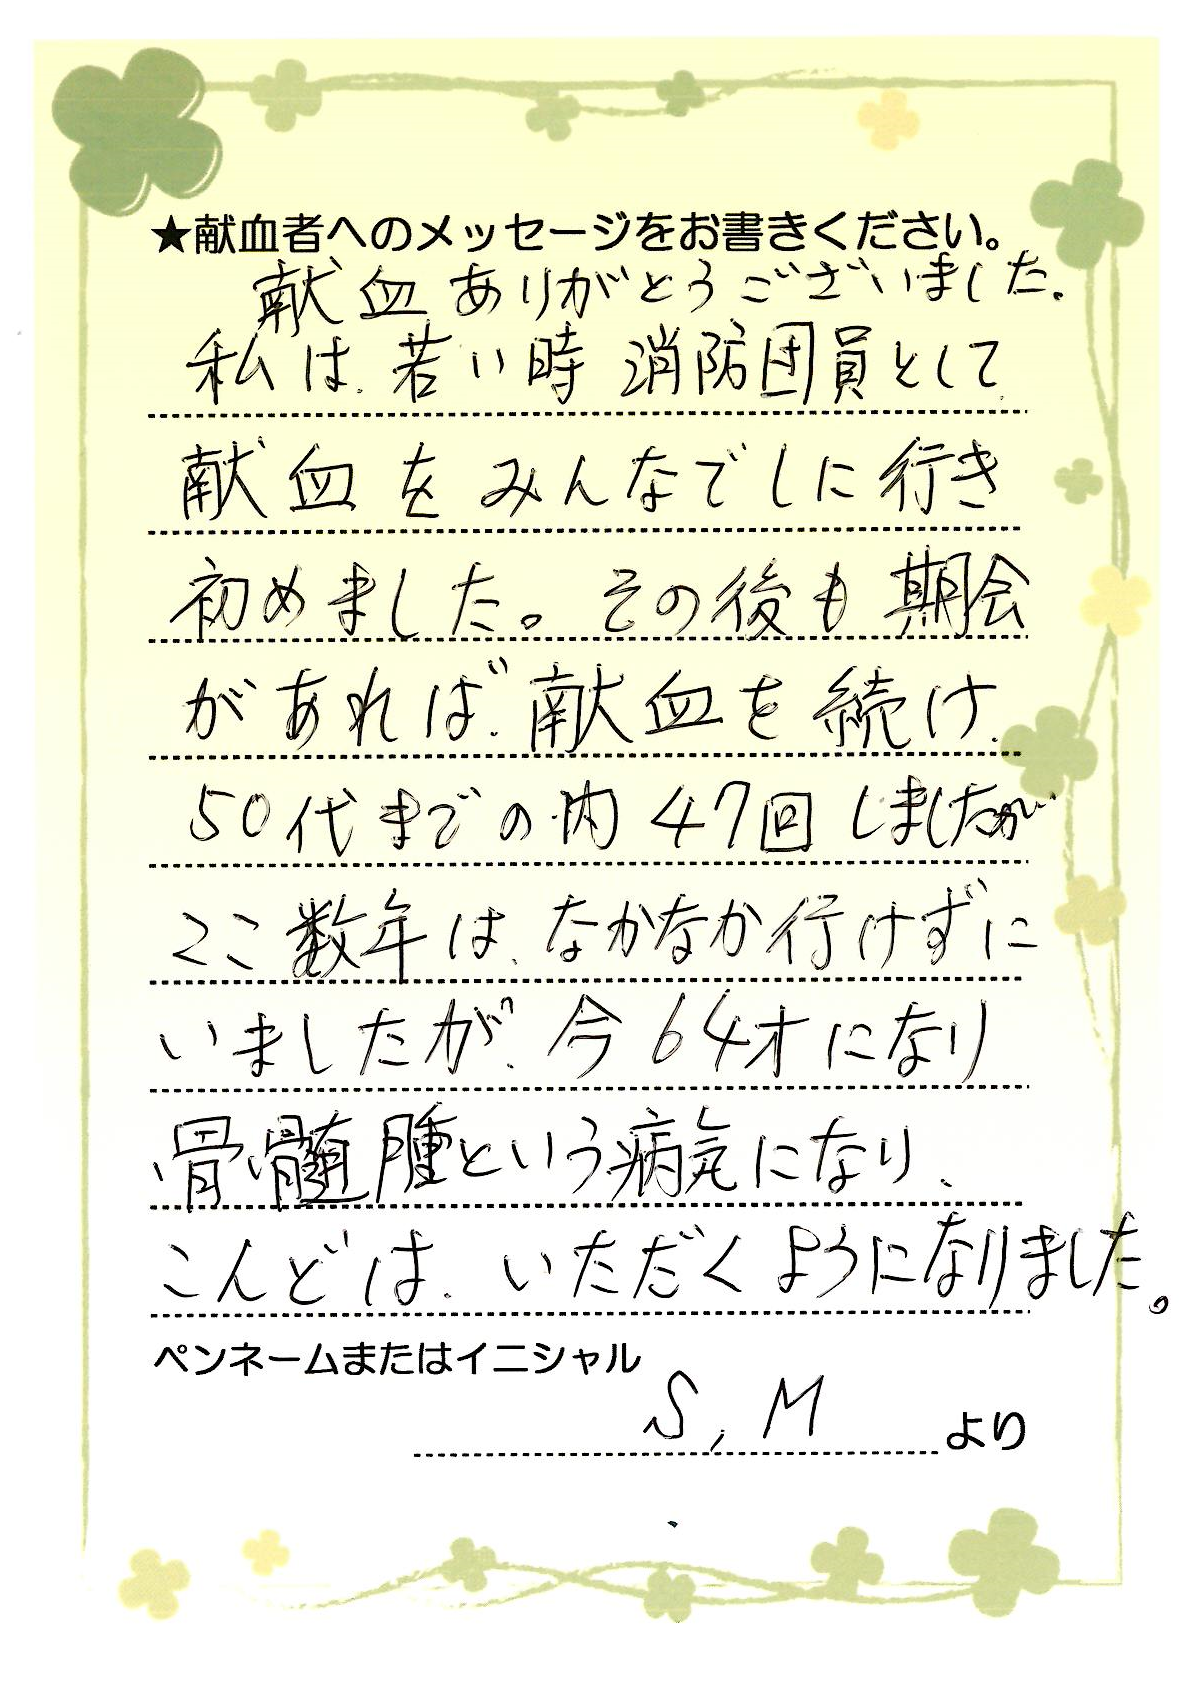 ★献血者へのメッセージをお書きください。
献血ありがとうございました.
私は、若い時 消防団員として、
献血をみんなでしに行き
初めました。その後も期会
があれば、献血を続け、
50代までの内 47回 しましたが
ここ数年は、なかなか行けずに
いましたが、今64才になり
骨髄腫という病気になり、
こんどは、いただくようになりました。
ペンネームまたはイニシャル
S, M より